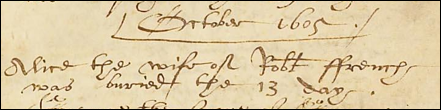 October 1605
Alice the wife of Robt ffrench
was buried the 13 day.